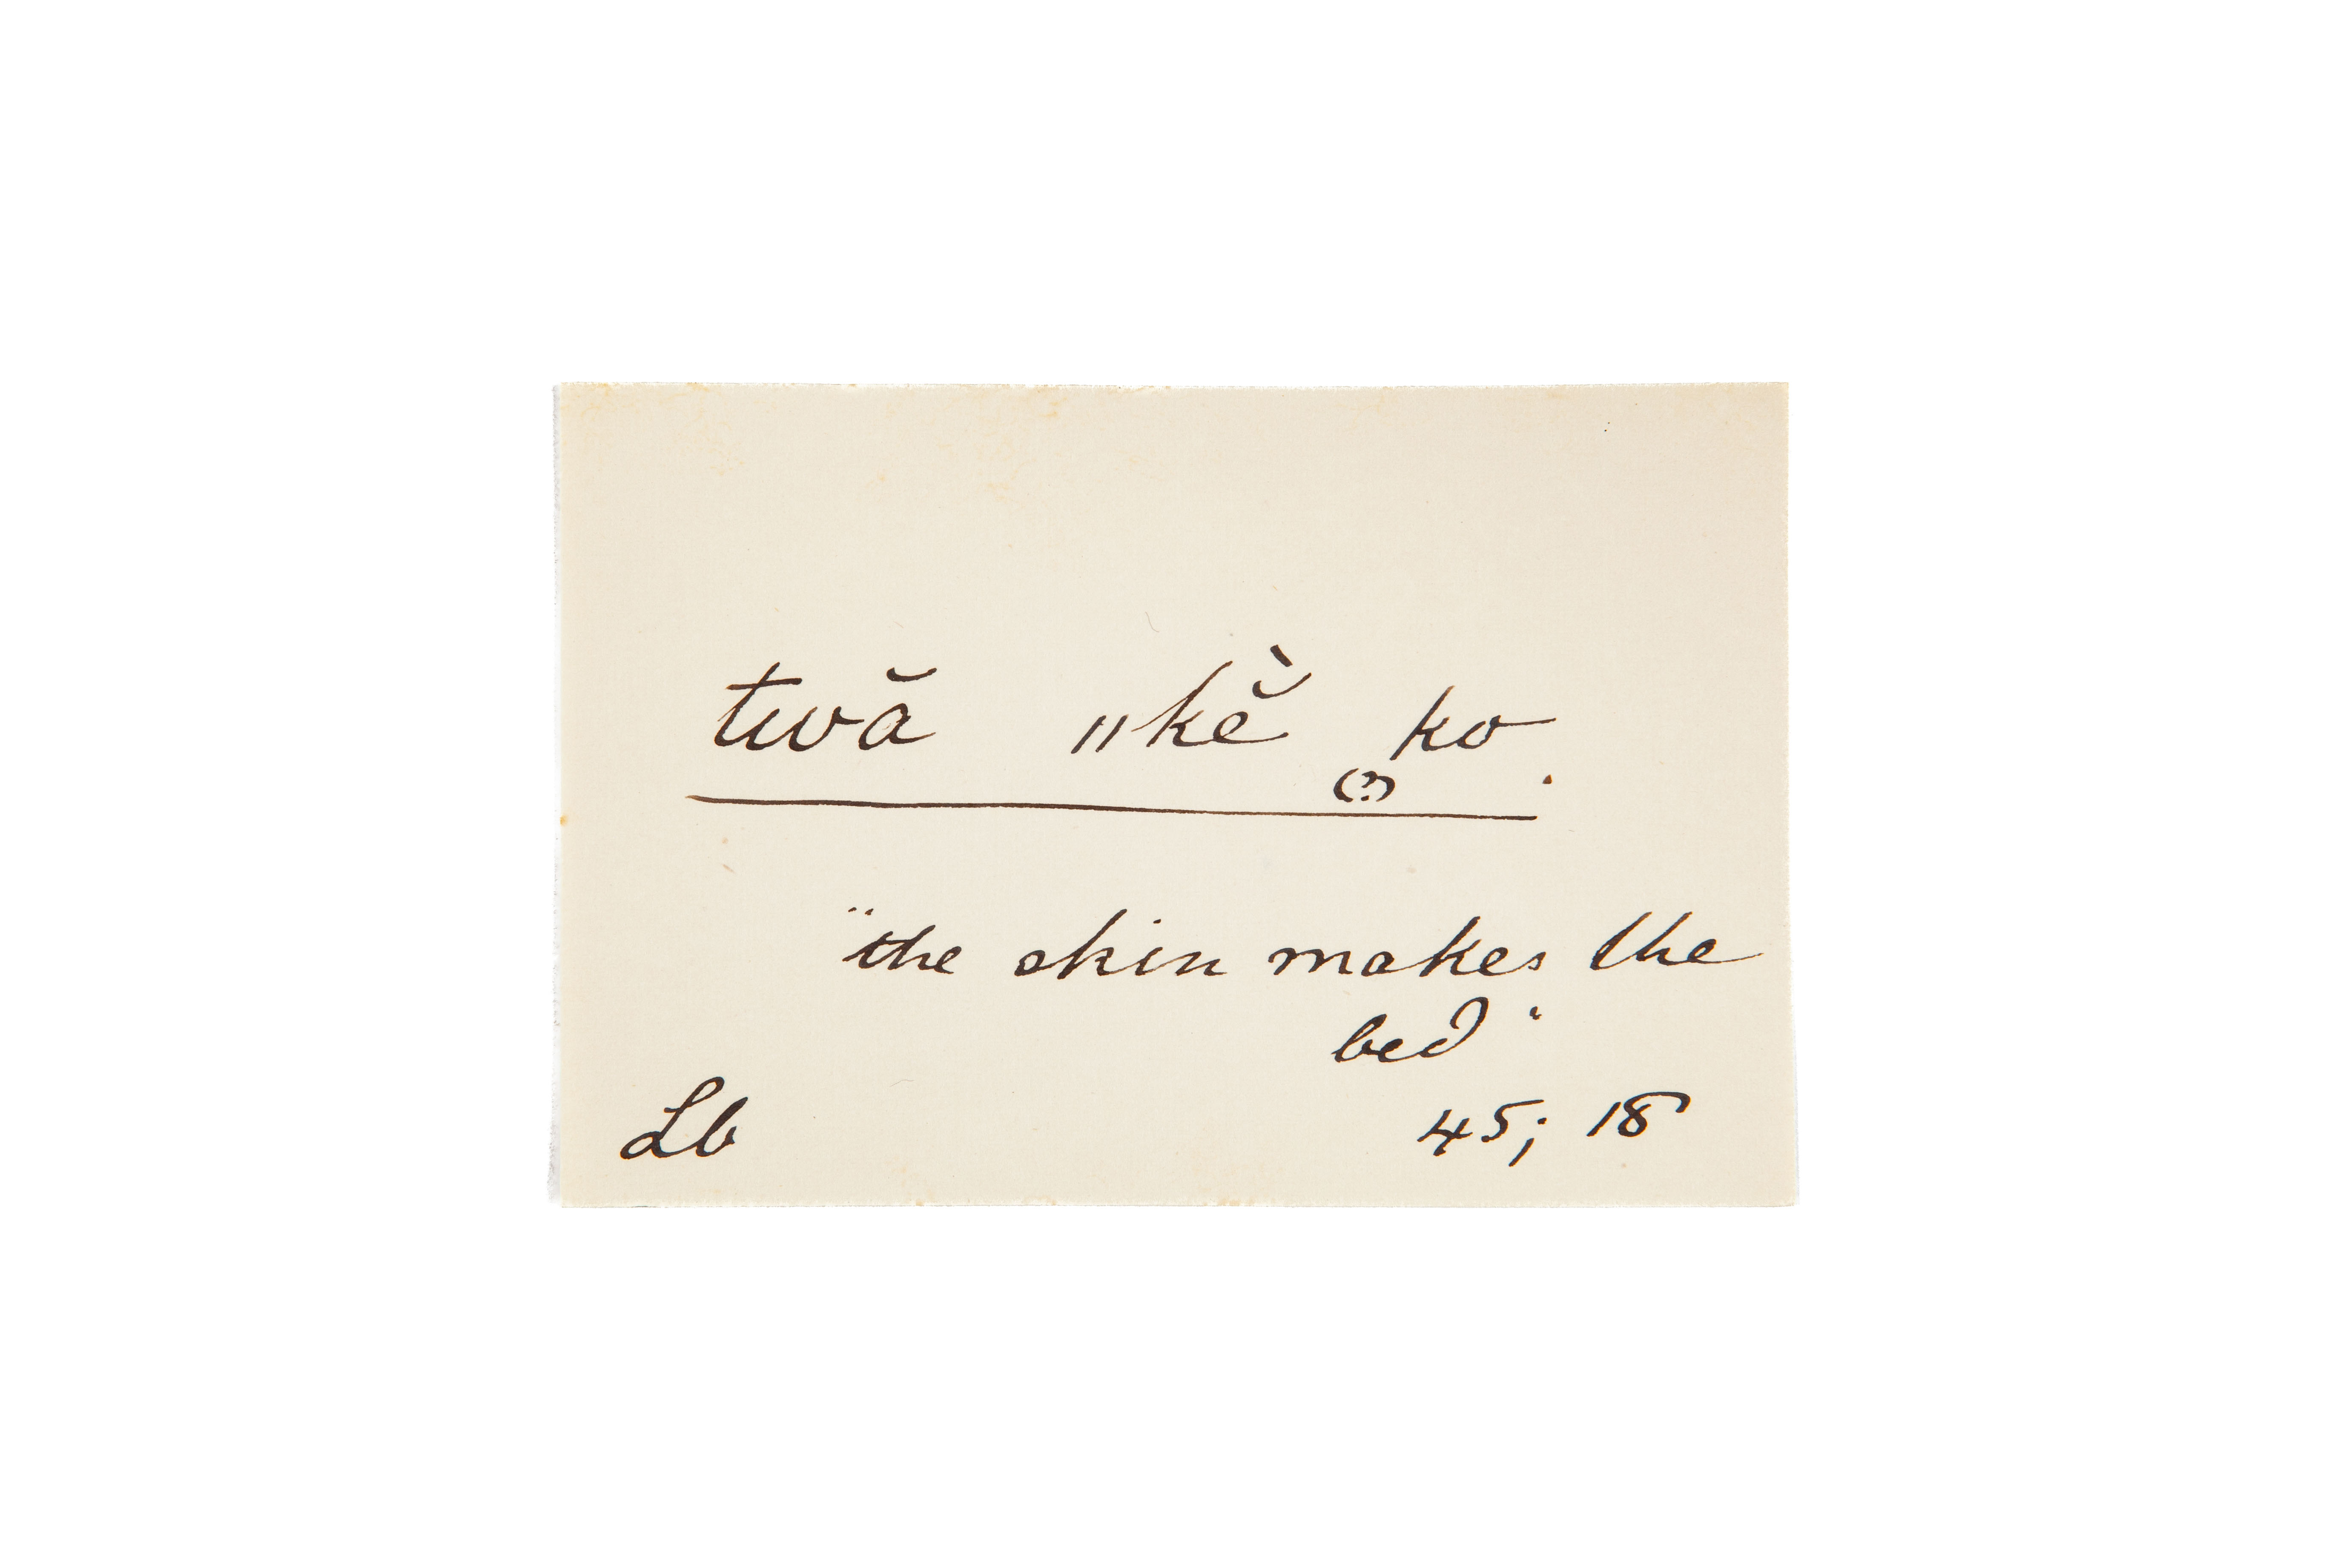 twă ˌˌkĕ̀ ko.
(?)
"the skin makes the
bed"
Lb 45; 18